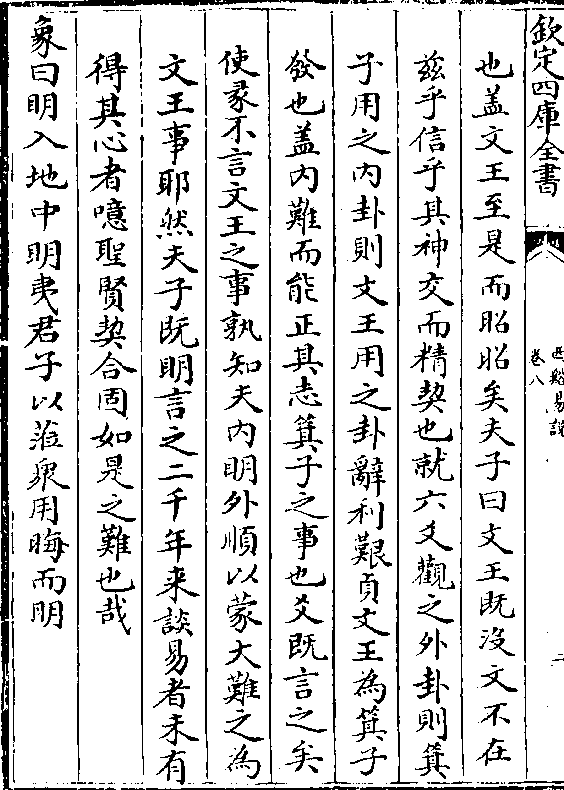 欽定四庫全書
西谿易說
卷八
二
也蓋文王至是而昭昭矣夫子曰文王既沒文不在
兹乎信乎其神交而精契也就六爻觀之外卦則箕
子用之内卦則文王用之卦辭利艱貞文王為箕子
發也蓋内難而能正其志箕子之事也爻既言之矣
使彖不言文王之事孰知夫内明外順以蒙大難之為
文王事耶然夫子既明言之二千年来談易者未有
得其心者噫聖賢契合固如是之難也哉
象曰明入地中明夷君子以蒞衆用晦而明